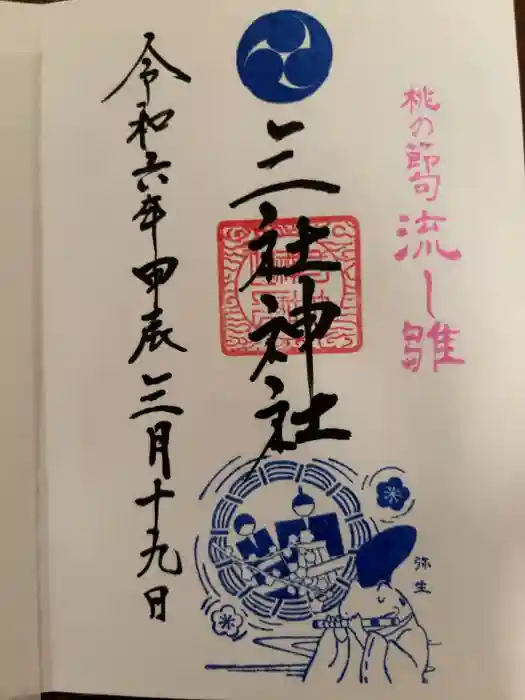 桃の節句 流し雛
三社神社
令和六年甲辰三月十九日
弥生